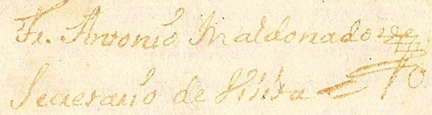 Fr. Antonio Maldonado
Secretario de Visita